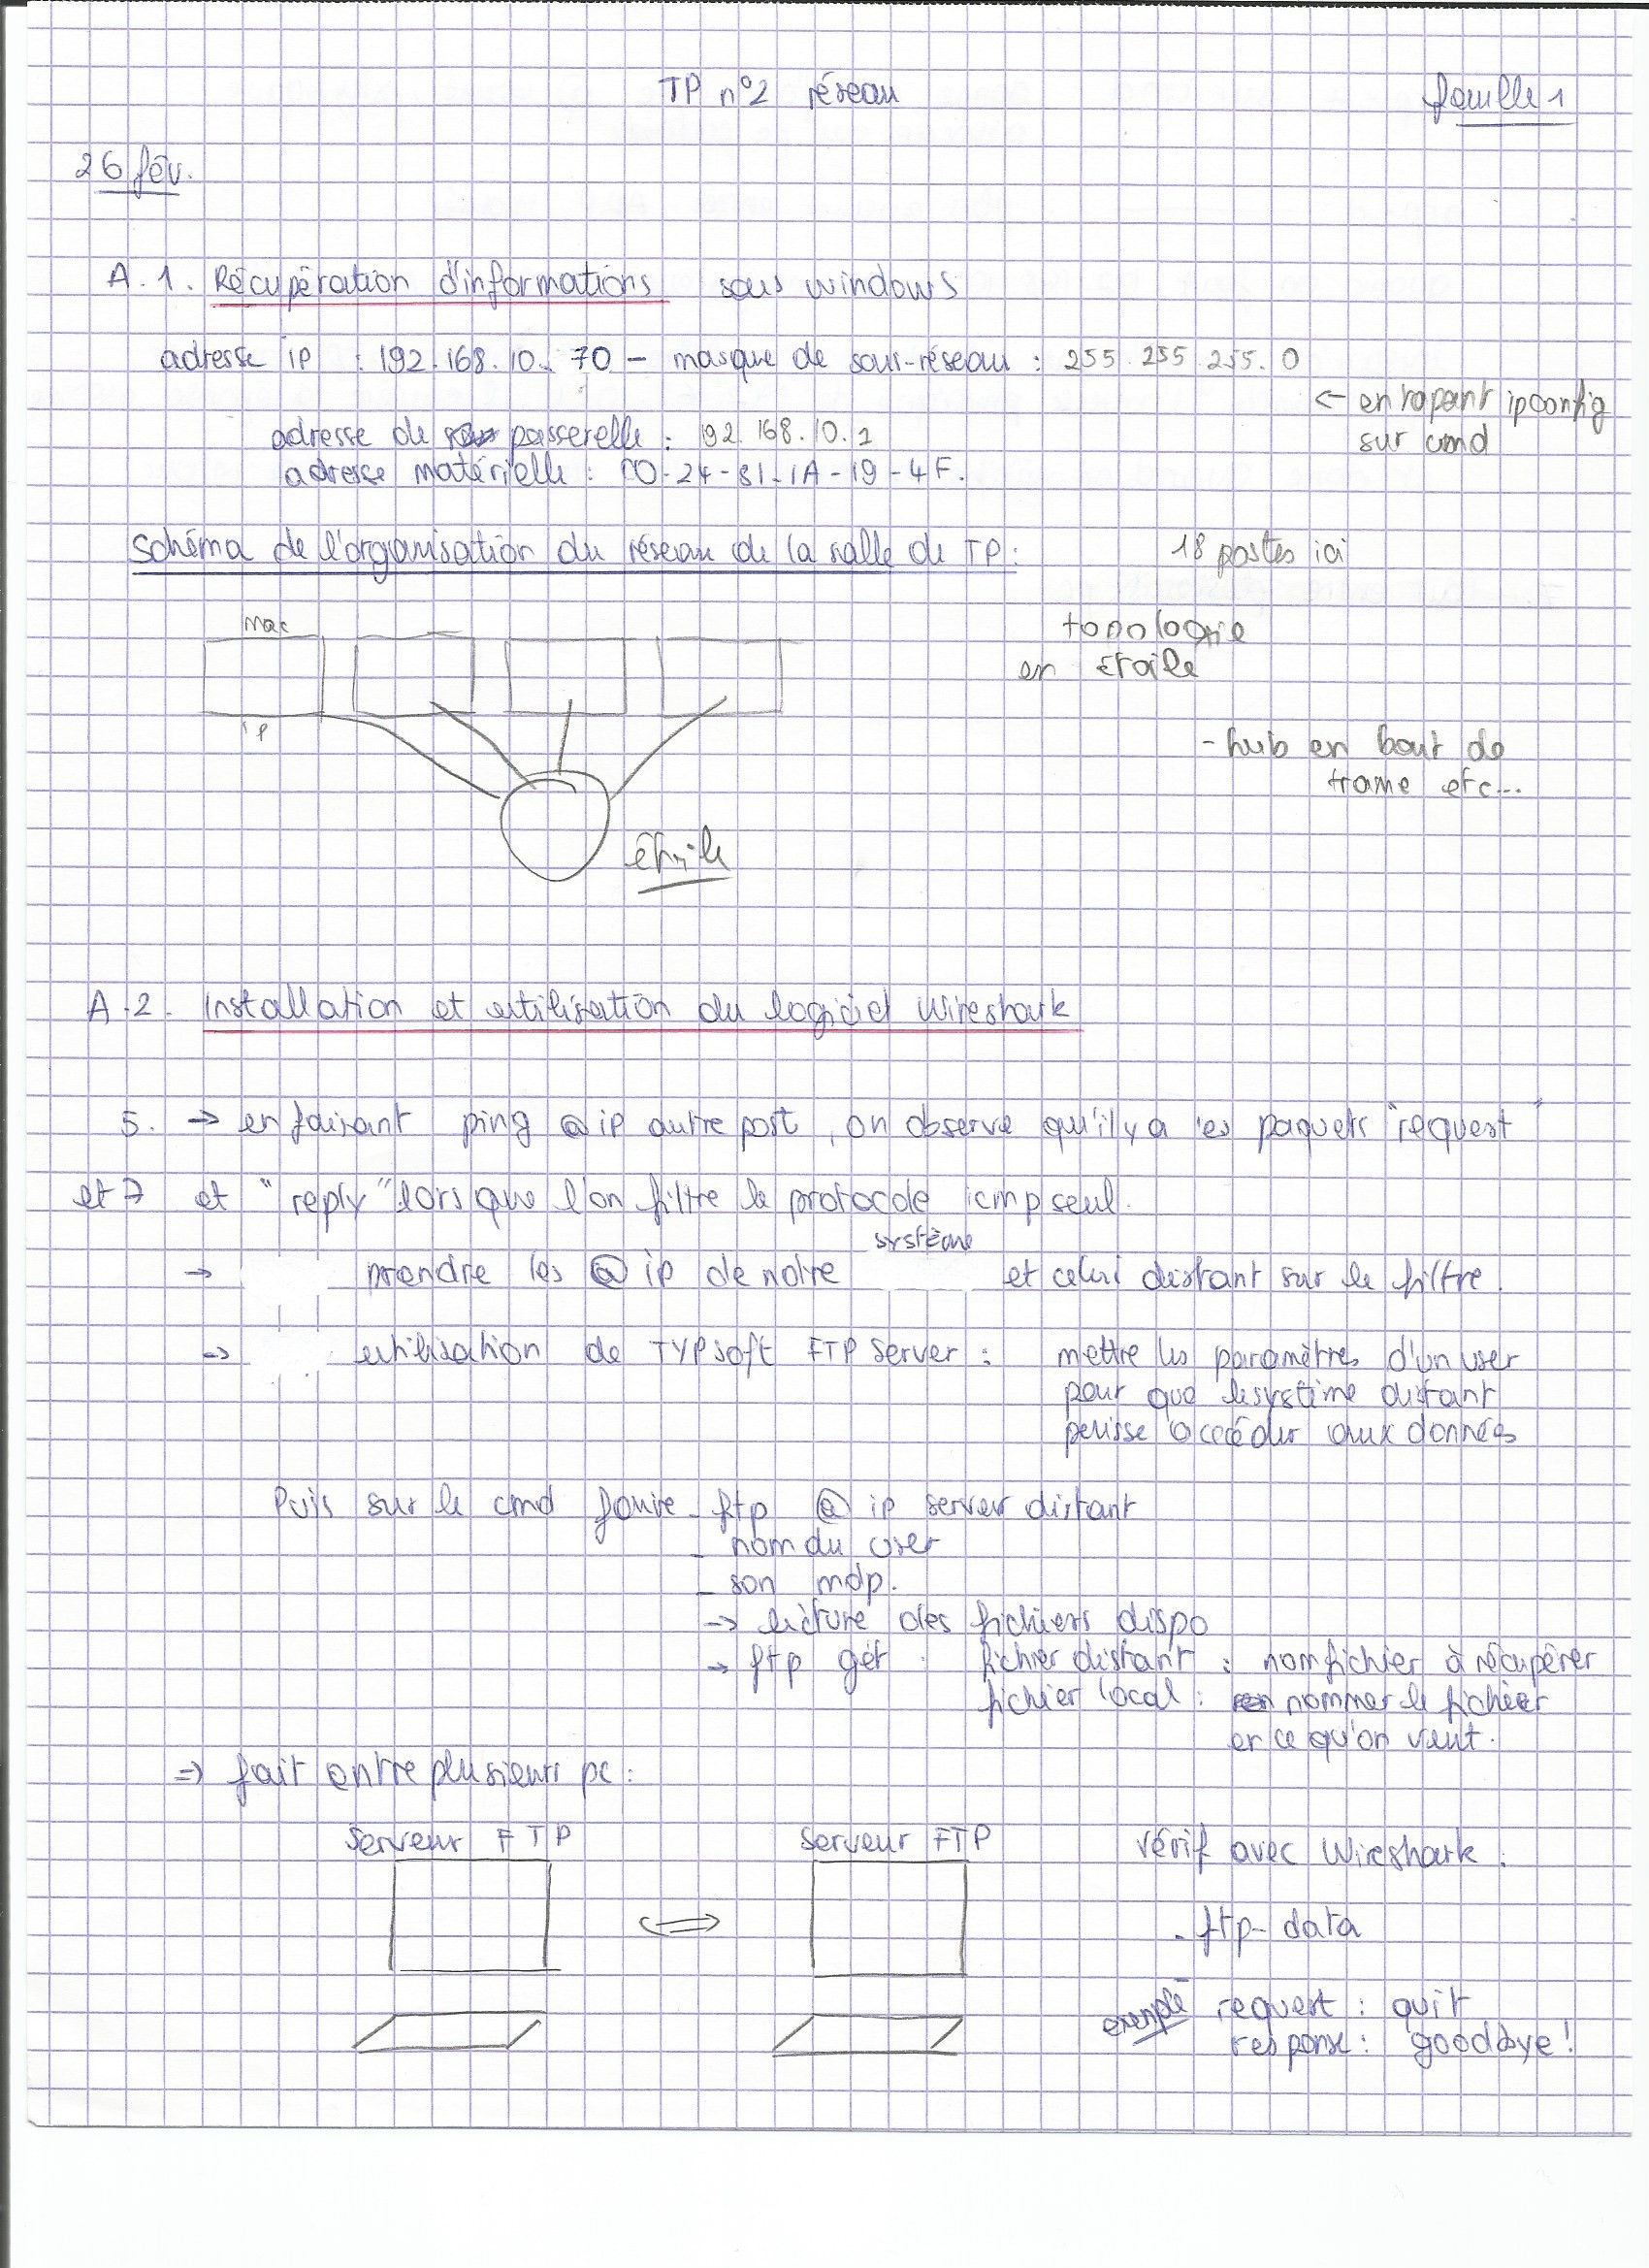 TP n°2 réseau
feuille 1
26 fév.
A.1. Récupération d'informations sous windows
adresse ip : 192.168.10.70 - masque de sous-réseau : 255.255.255.0
← en tapant ipconfig
sur cmd
adresse de passerelle : 192.168.10.2
adresse matérielle : 00-24-81-1A-19-4F.
Schéma de l'organisation du réseau de la salle de TP :
18 postes ici
mac
ip
topologie
en étoile
- hub en bout de
trame etc...
étoile
A.2. Installation et utilisation du logiciel Wireshark
5. → en faisant ping @ ip autre post, on observe qu'il y a les paquets "request"
et 7 et "reply" lorsque l'on filtre le protocole icmp seul.
→ prendre les @ ip de notre système et celui distant sur le filtre.
→ utilisation de TYPsoft FTP Server : mettre les paramètres d'un user
pour que le système distant
puisse accéder aux données
Puis sur le cmd faire - ftp @ ip server distant
- nom du user
- son mdp.
→ lecture des fichiers dispo
→ ftp get : fichier distant : nom fichier à récupérer
fichier local : nommer le fichier
en ce qu'on veut.
⇒ fait entre plusieurs pc :
Serveur FTP
serveur FTP
vérif avec Wireshark :
- ftp-data
exemple request : quit
response : goodbye !